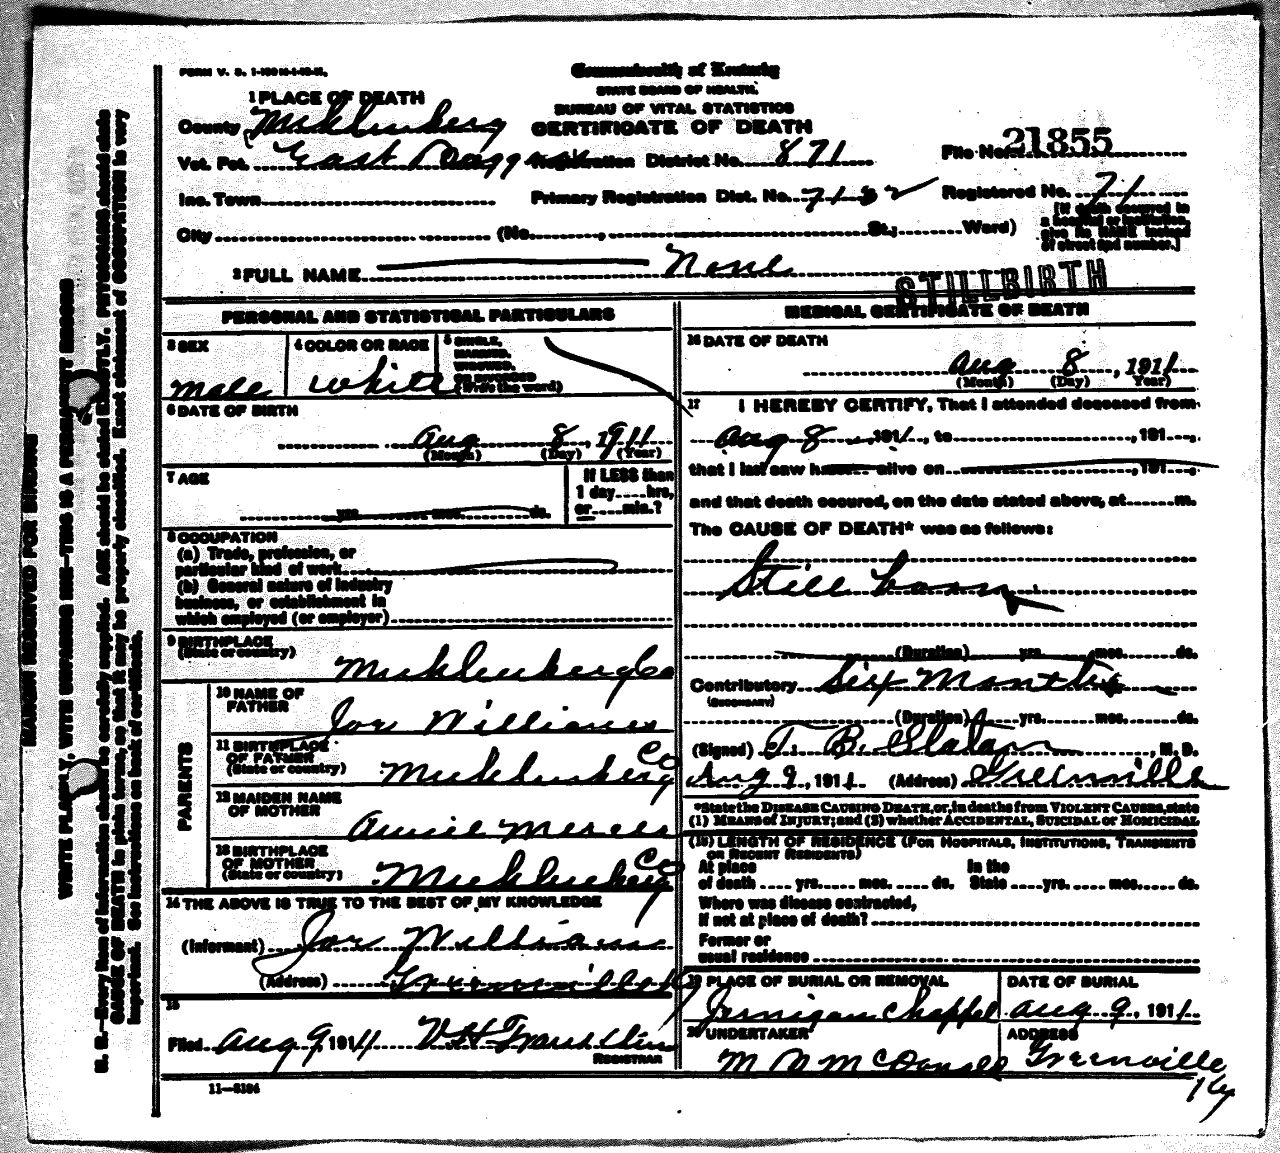 FORM V. S. 1-
Commonwealth of Kentucky
STATE BOARD OF HEALTH.
BUREAU OF VITAL STATISTICS
CERTIFICATE OF DEATH
1 PLACE OF DEATH
County Muhlenberg
Vot. Pct. East Registration District No. 871
File No. 21855
Inc. Town Primary Registration Dist. No. 71 2 Registered No. 71
City (No. , St.; Ward)
[If death occurred in
a hospital or institution,
give its NAME instead
of street and number.]
2 FULL NAME None
STILLBIRTH
PERSONAL AND STATISTICAL PARTICULARS
3 SEX
Male
4 COLOR OR RACE
White
5 SINGLE,
MARRIED,
WIDOWED,
OR DIVORCED
(Write the word)
6 DATE OF BIRTH
Aug 8, 1911
(Month) (Day) (Year)
7 AGE
yrs. mos. ds.
If LESS than
1 day....hrs,
or....min.?
8 OCCUPATION
(a) Trade, profession, or
particular kind of work
(b) General nature of industry
business, or establishment in
which employed (or employer)
9 BIRTHPLACE
(State or country)
Muhlenberg Co
PARENTS
10 NAME OF
FATHER
Joe Williams
11 BIRTHPLACE
OF FATHER
(State or country)
Muhlenberg Co
12 MAIDEN NAME
OF MOTHER
Annie Mercer
13 BIRTHPLACE
OF MOTHER
(State or country)
Muhlenberg Co
14 THE ABOVE IS TRUE TO THE BEST OF MY KNOWLEDGE
(Informant) Joe Williams
(Address) Greenville Ky
15
Filed Aug 9, 1911
REGISTRAR
11-3184
MEDICAL CERTIFICATE OF DEATH
16 DATE OF DEATH
Aug 8, 1911
(Month) (Day) Year)
17 I HEREBY CERTIFY, That I attended deceased from
Aug 8 1911, to , 191 ,
that I last saw h alive on , 191 ,
and that death occured, on the date stated above, at m.
The CAUSE OF DEATH* was as follows:
Still born
(Duration) yrs. mos. ds.
Contributory Six Months
(SECONDARY)
(Duration) yrs. mos. ds.
(Signed) T. B. , M. D.
Aug 9, 1911 (Address) Greenville
*State the DISEASE CAUSING DEATH, or, in deaths from VIOLENT CAUSES, state
(1) MEANS of INJURY; and (2) whether ACCIDENTAL, SUICIDAL or HOMICIDAL
(18) LENGTH OF RESIDENCE (FOR HOSPITALS, INSTITUTIONS, TRANSIENTS
OR RECENT RESIDENTS)
At place In the
of death yrs. mos. ds. State yrs. mos. ds.
Where was disease contracted,
If not at place of death?
Former or
usual residence
19 PLACE OF BURIAL OR REMOVAL
Jernigan Chappel
DATE OF BURIAL
Aug 9, 1911
20 UNDERTAKER
McDonald
ADDRESS
Greenville
Ky
MARGIN RESERVED FOR BINDING
WRITE PLAINLY, WITH UNFADING INK—THIS IS A PERMANENT RECORD
N. B.—Every item of information should be carefully supplied. AGE should be stated EXACTLY. PHYSICIANS should state
CAUSE OF DEATH in plain terms, so that it may be properly classified. Exact statement of OCCUPATION is very
important. See instructions on back of certificate.